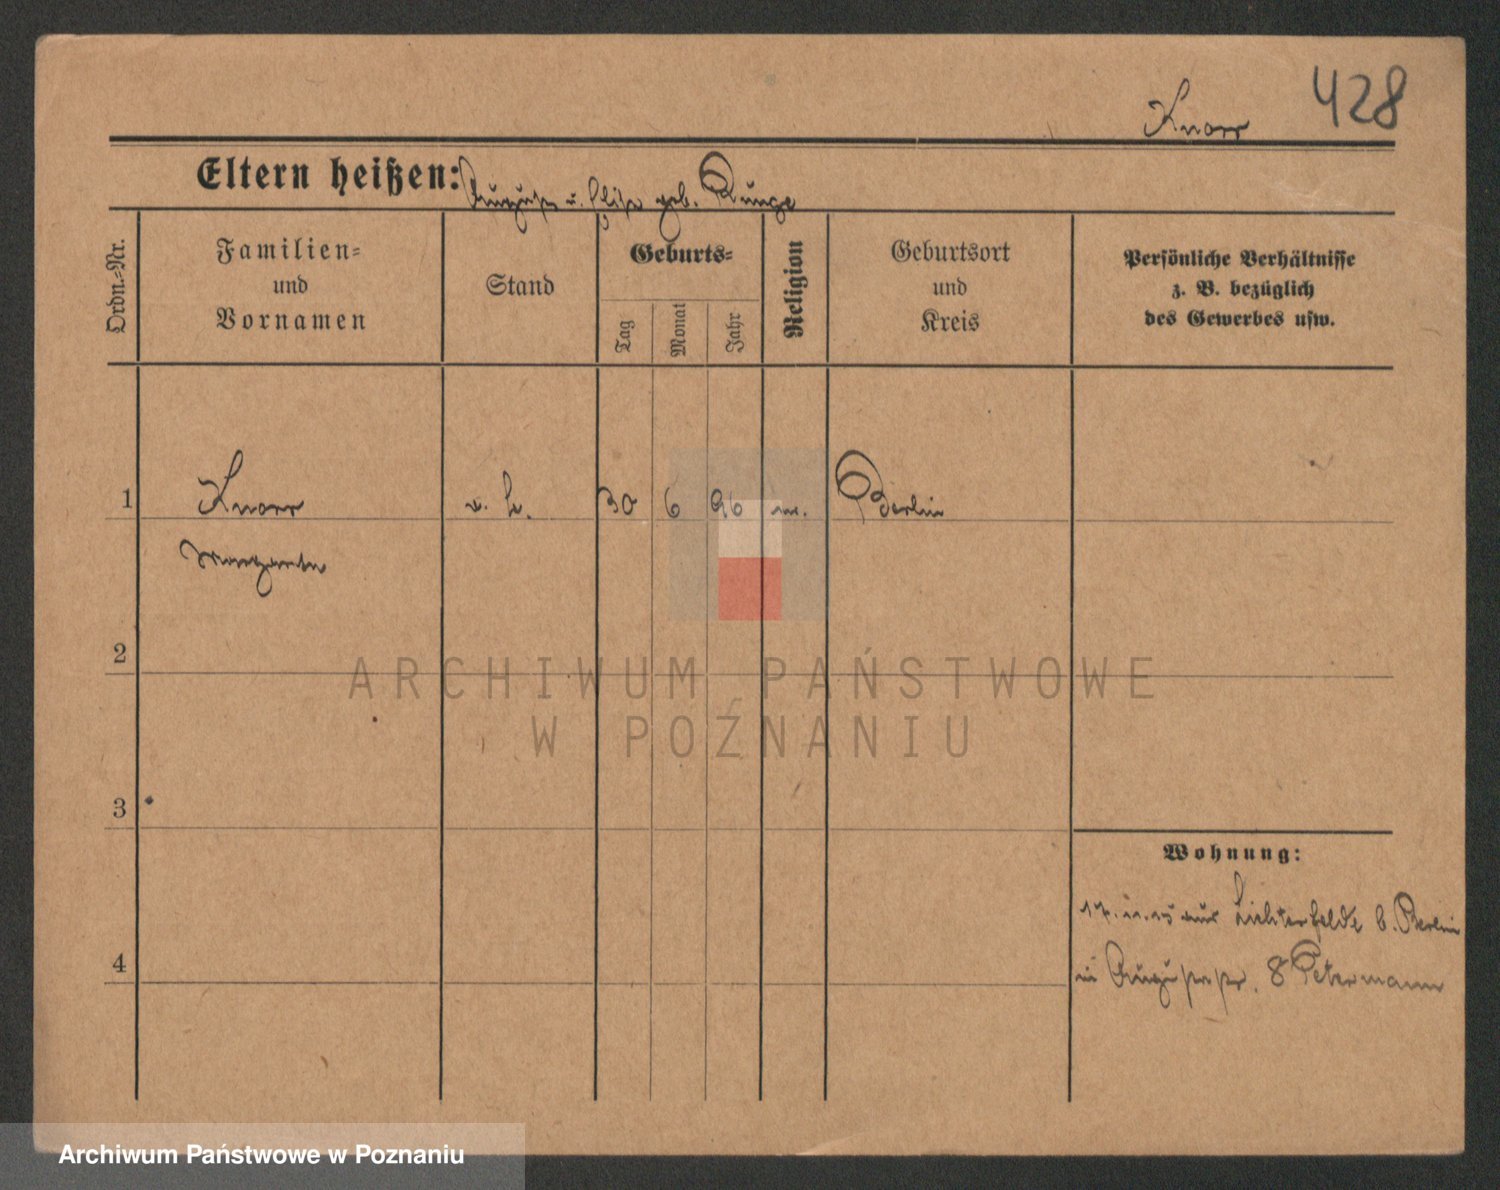 428
Knorr
Eltern heißen: August u. Elise geb. Runge
Ordn.-Nr.
Familien-
und
Vornamen
Stand
Geburts-
Tag
Monat
Jahr
Religion
Geburtsort
und
Kreis
Persönliche Verhältnisse
z. B. bezüglich
des Gewerbes usw.
1 Knorr 30 6 96 Berlin
Margarete
2
3
4
ARCHIWUM PAŃSTWOWE
W POZNANIU
Wohnung:
aus Lichterfelde b. Berlin
in Augustastr. 8 Petermann
Archiwum Państwowe w Poznaniu